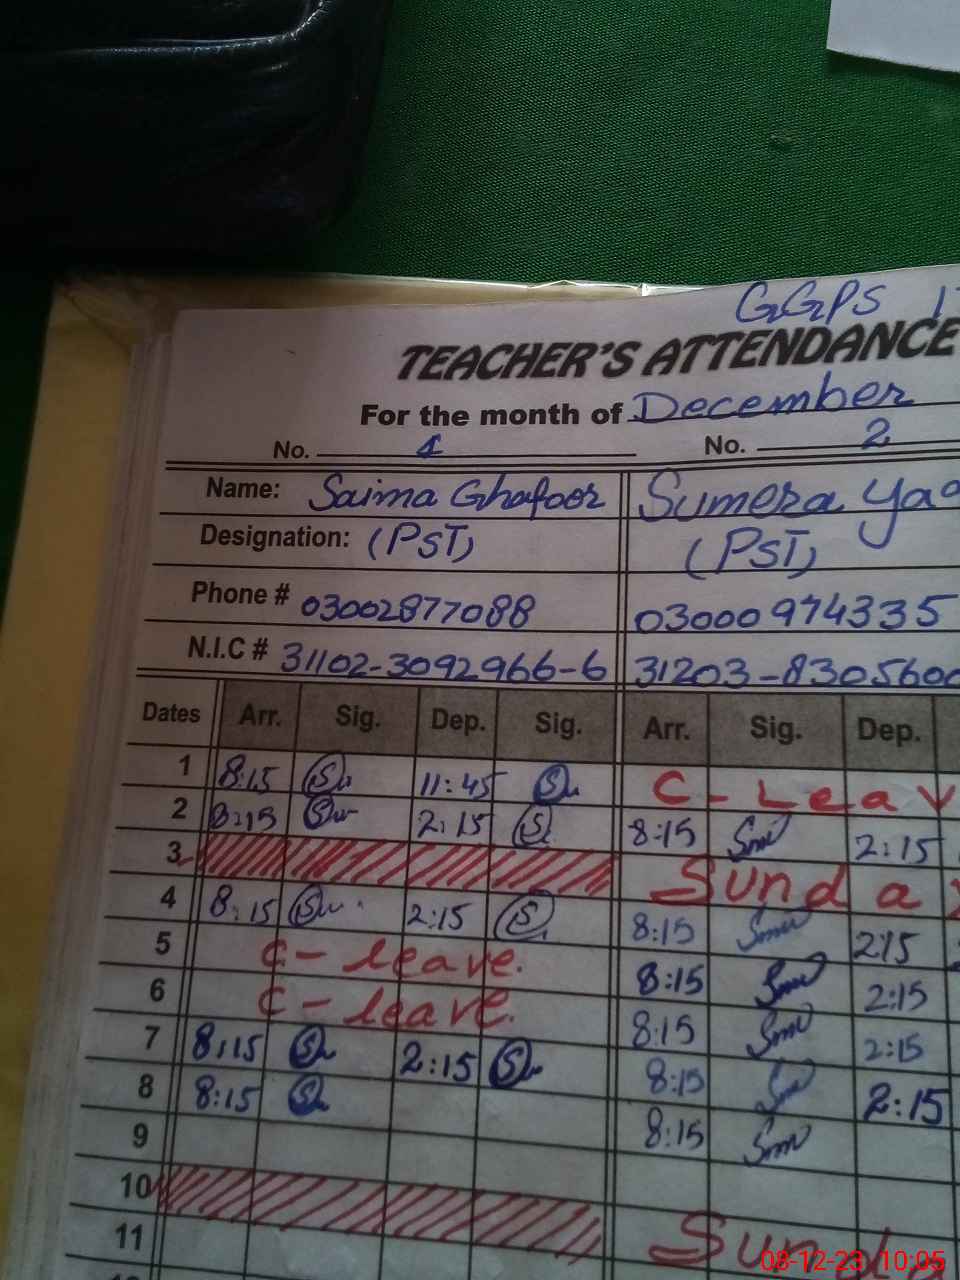 GGPS
TEACHER'S ATTENDANCE
For the month of December
No. 1 No. 2
Name: Saima Ghafoor Sumera
Designation: (PST) (PST)
Phone # 03002877088 03000974335
N.I.C # 31102-3092966-6 31203-830560
Dates Arr. Sig. Dep. Sig. Arr. Sig. Dep.
1 8:15 11:45 C-Leav
2 8:15 2:15 8:15 2:15
3 Sunday
4 8:15 2:15 8:15 2:15
5 C-leave. 8:15 2:15
6 C-leave. 8:15 2:15
7 8:15 2:15 8:15 2:15
8 8:15 8:15
9
10 Sunda
11
08-12-23 10:05